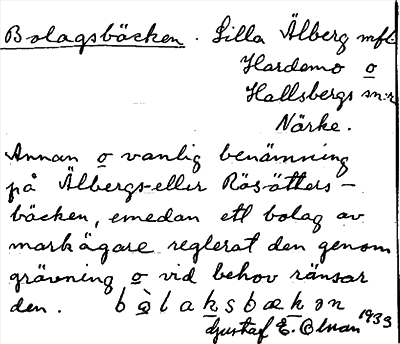 Bolagsbäcken. Lilla Älberg mfl.
Hardemo o
Hallsbergs sn:r
Närke.
Annan o vanlig benämning
på Älbergs- eller Rösätters-
bäcken, emedan ett bolag av
markägare reglerat den genom
grävning o vid behov ränsar
den. bȯ̱laksbækən
Gustaf E. 1933